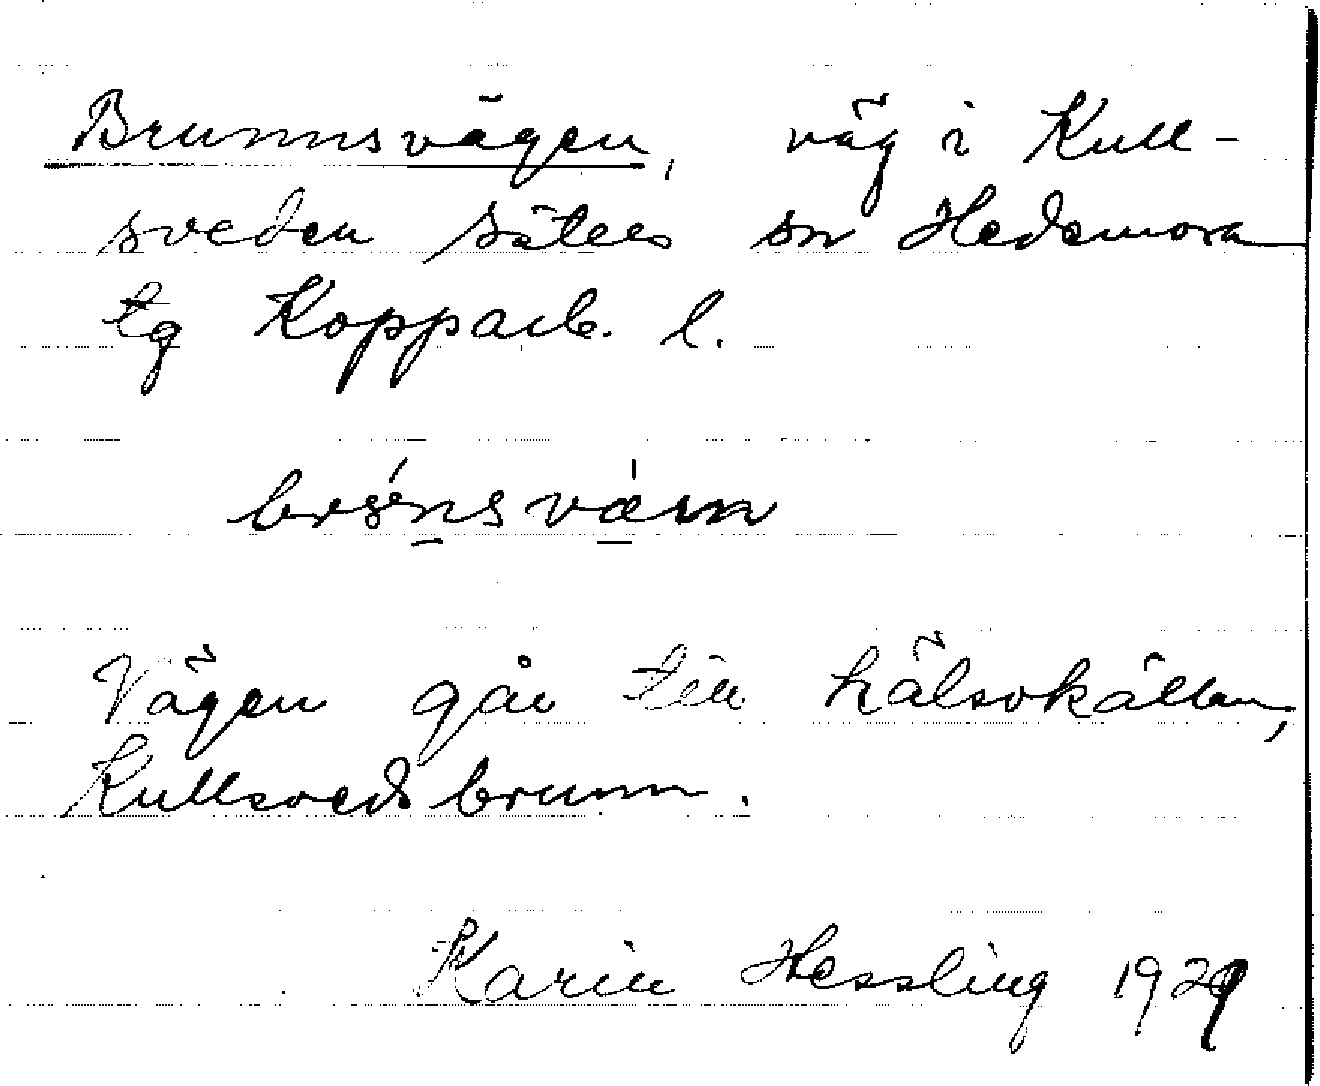 Brunnsvägen, väg i Kull-
sveden Säters sn Hedemora
tg Kopparb. l.
Vägen går till hälsokällan,
Kullsveds brunn.
Karin Hessling 1929